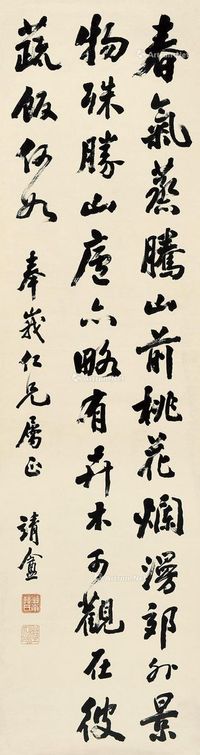 春氣蒸騰山前桃花爛漫郊外景
物殊勝山廬亦略有卉木可觀在彼
蔬飯何如
奉義仁兄屬正
靖盦